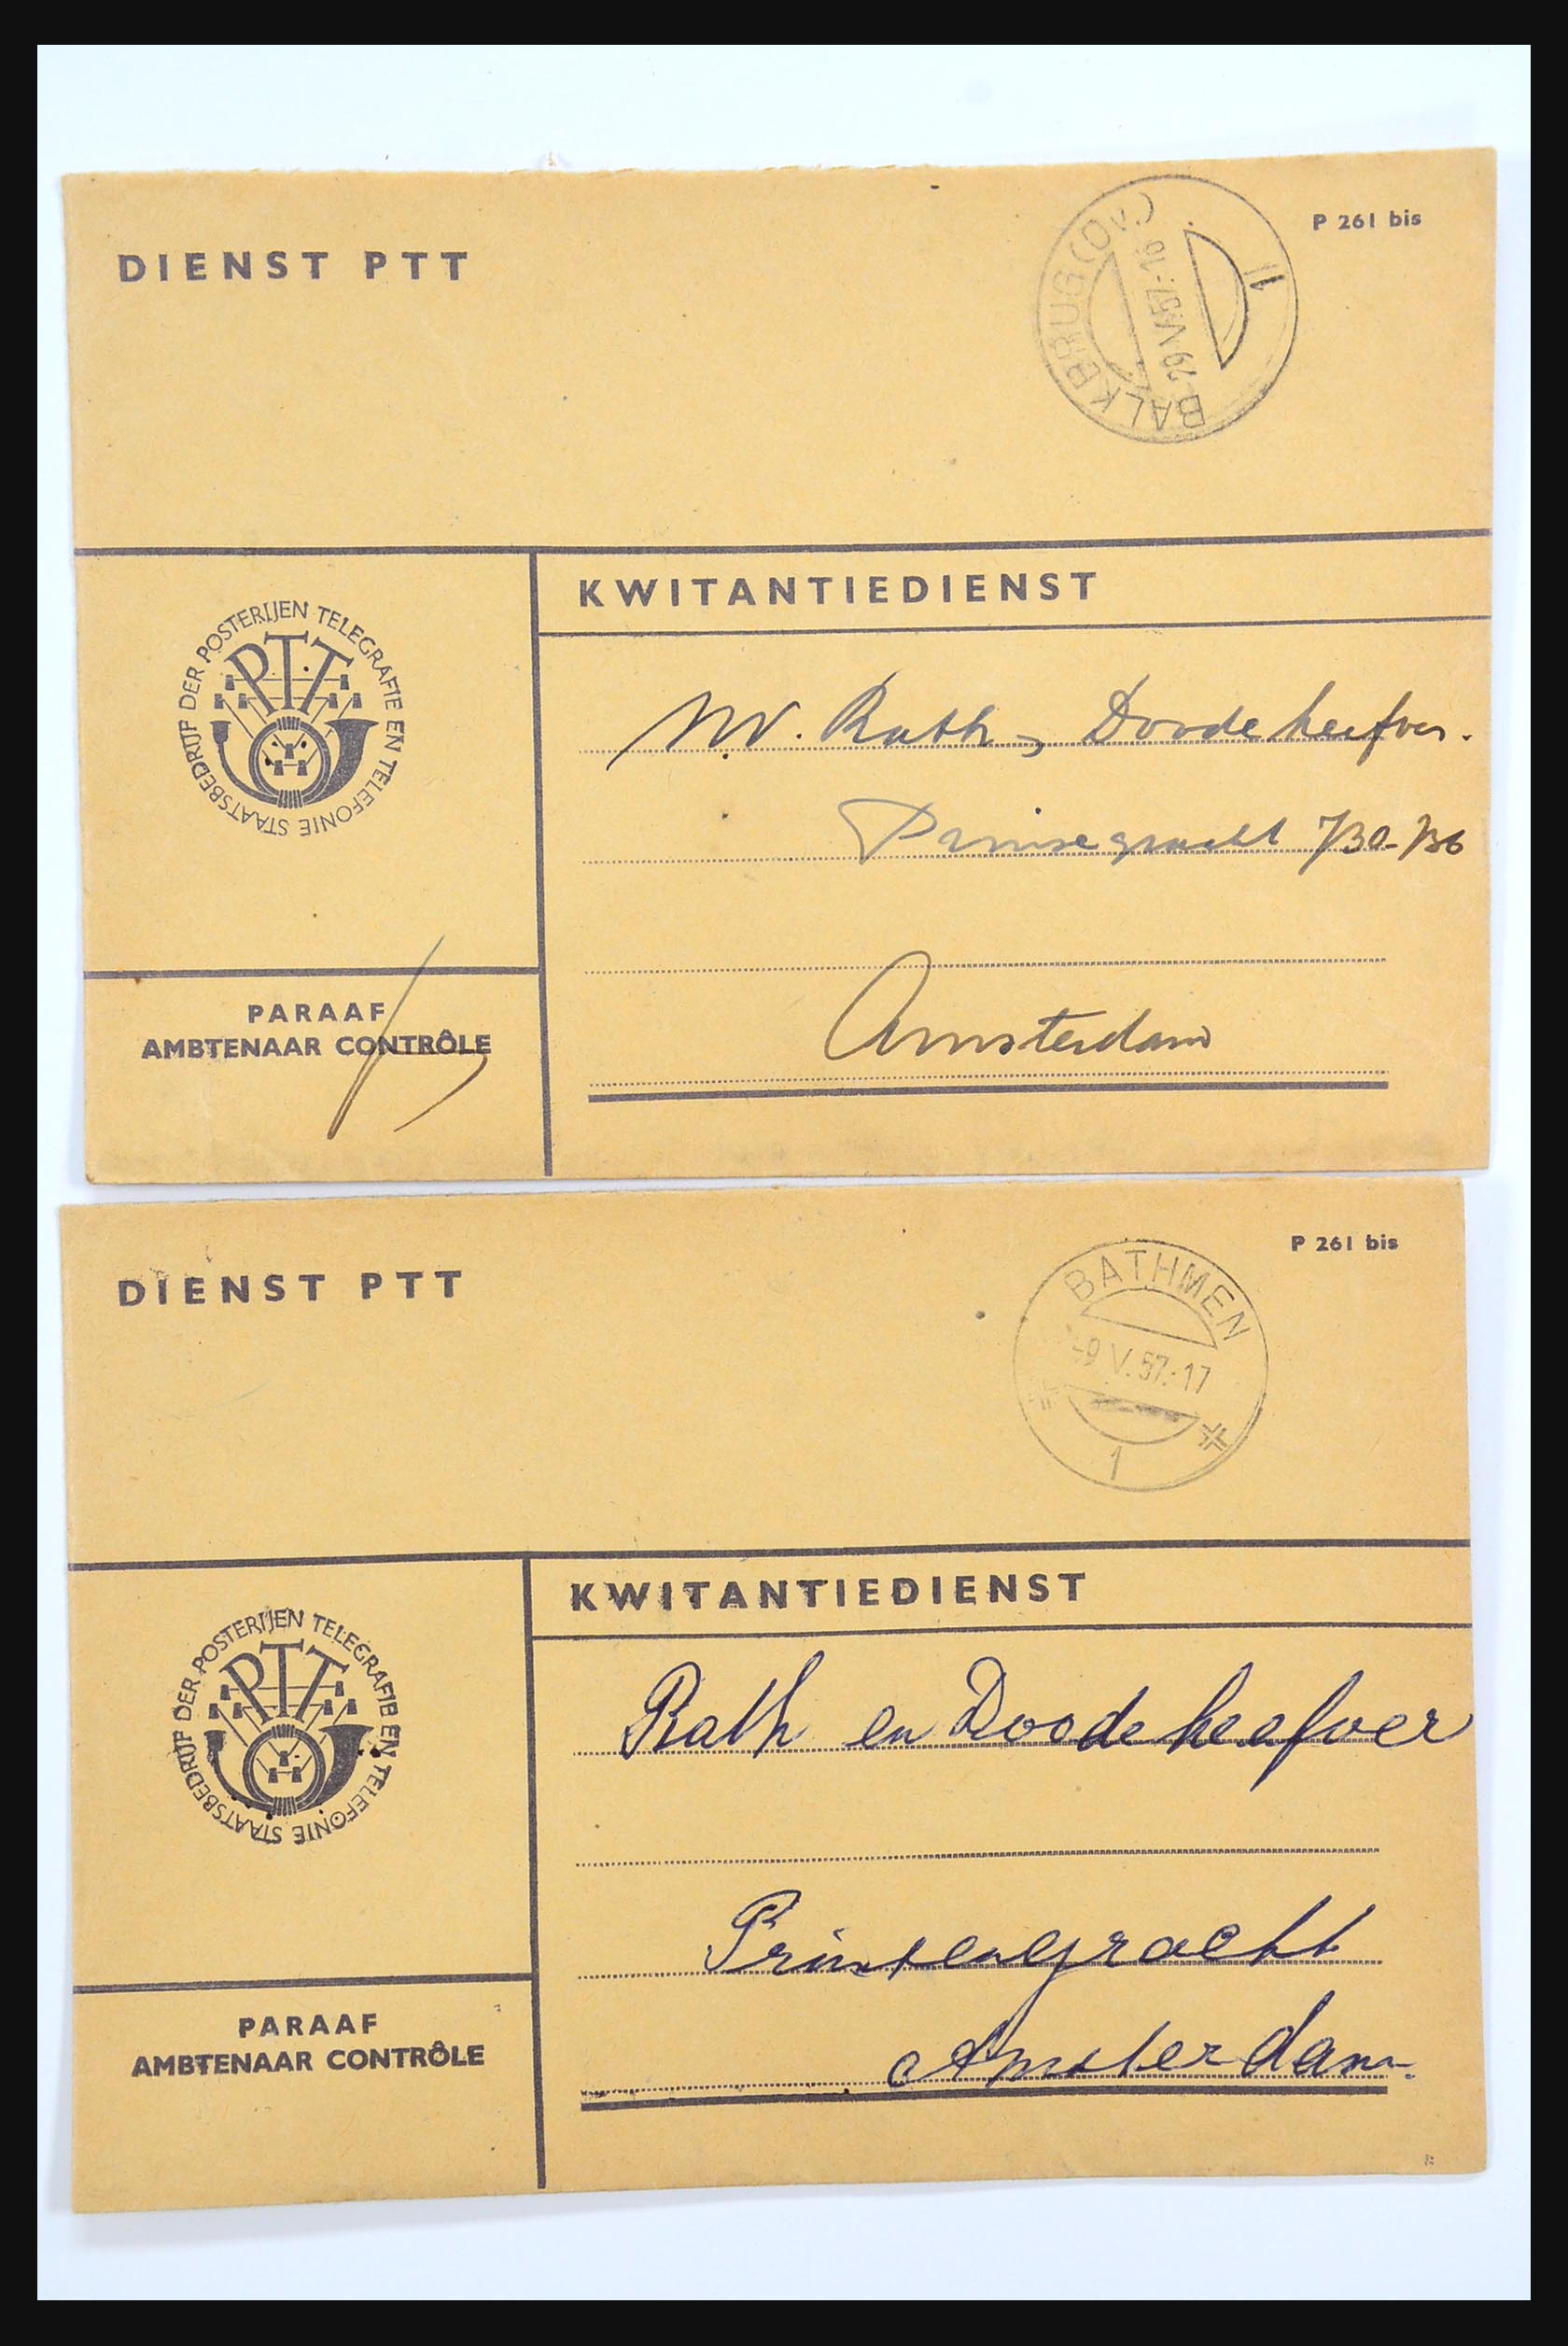 DIENST PTT
P 261 bis
BALKBRUG (Ov.)
29 V.57.-16
1
STAATSBEDRIJF DER POSTERIJEN TELEGRAFIE EN TELEFONIE
PTT
KWITANTIEDIENST
NV. Rath & Doodeheefver.
Prinsegracht 730-736
Amsterdam
PARAAF
AMBTENAAR CONTRÔLE
DIENST PTT
P 261 bis
BATHMEN
-9 V.57.-17
1
STAATSBEDRIJF DER POSTERIJEN TELEGRAFIE EN TELEFONIE
PTT
KWITANTIEDIENST
Rath en Doodeheefver
Prinsengracht
Amsterdam
PARAAF
AMBTENAAR CONTRÔLE